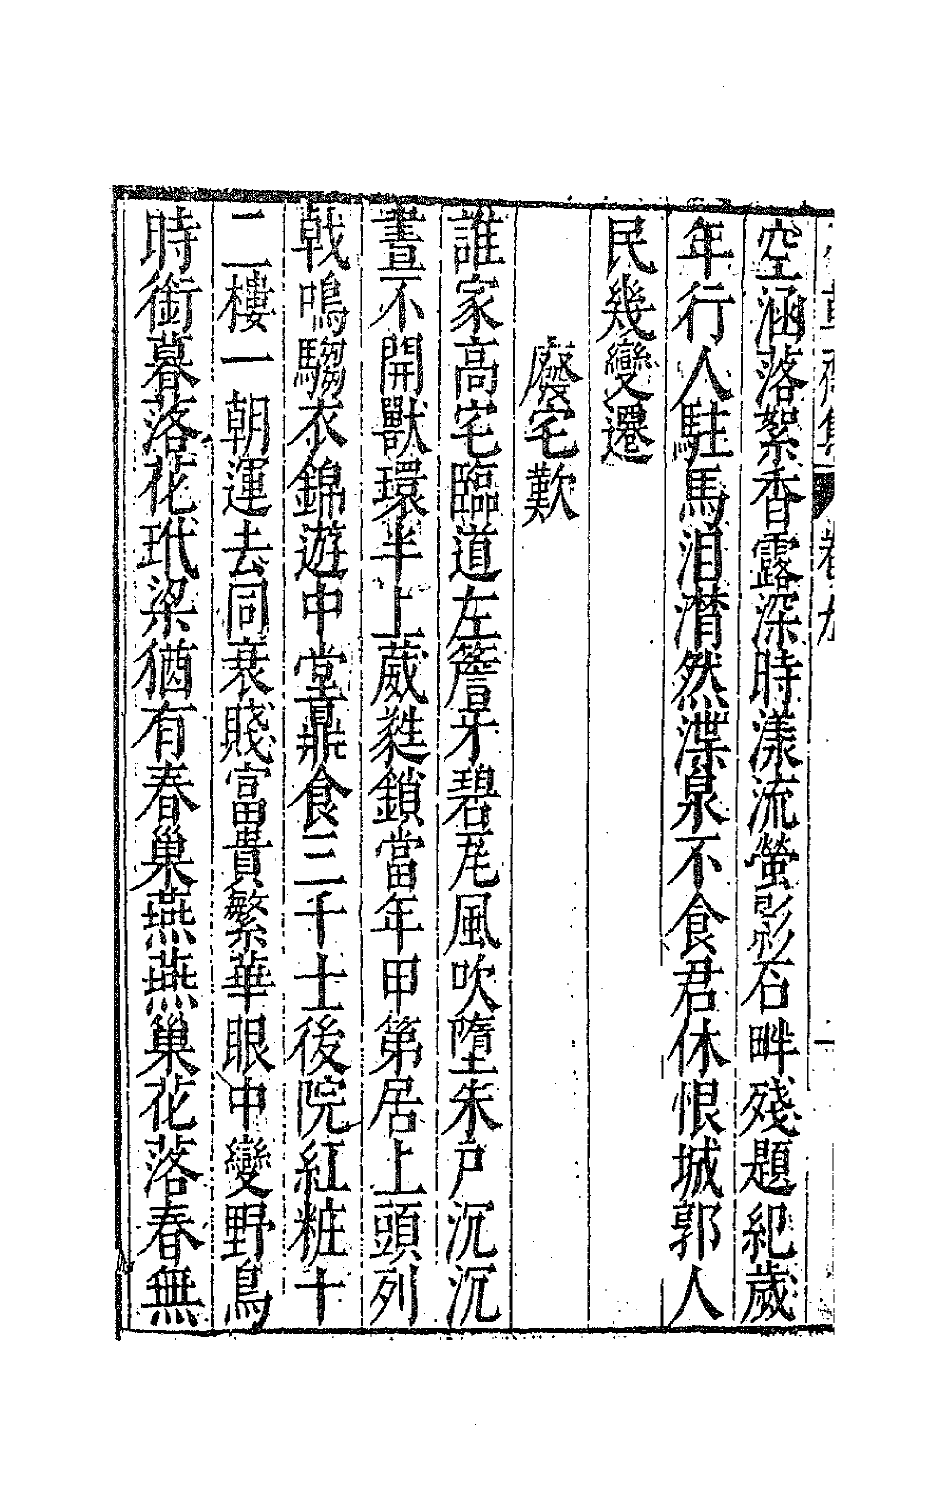 空涵落絮香露深時漾流螢影石畔殘題紀歲
年行人駐馬泪潸然渫泉不食君休恨城郭人
民幾變遷
廢宅歎
誰家高宅臨道左簷牙碧瓦風吹墮朱戶沉沉
晝不開獸環半上葳蕤鎖當年甲第居上頭列
戟鳴騶衣錦遊中堂鼎食三千士後院紅粧十
二樓一朝運去同衰賤富貴繁華眼中變野鳥
時銜暮落花玳梁猶有春巢燕燕巢花落春無